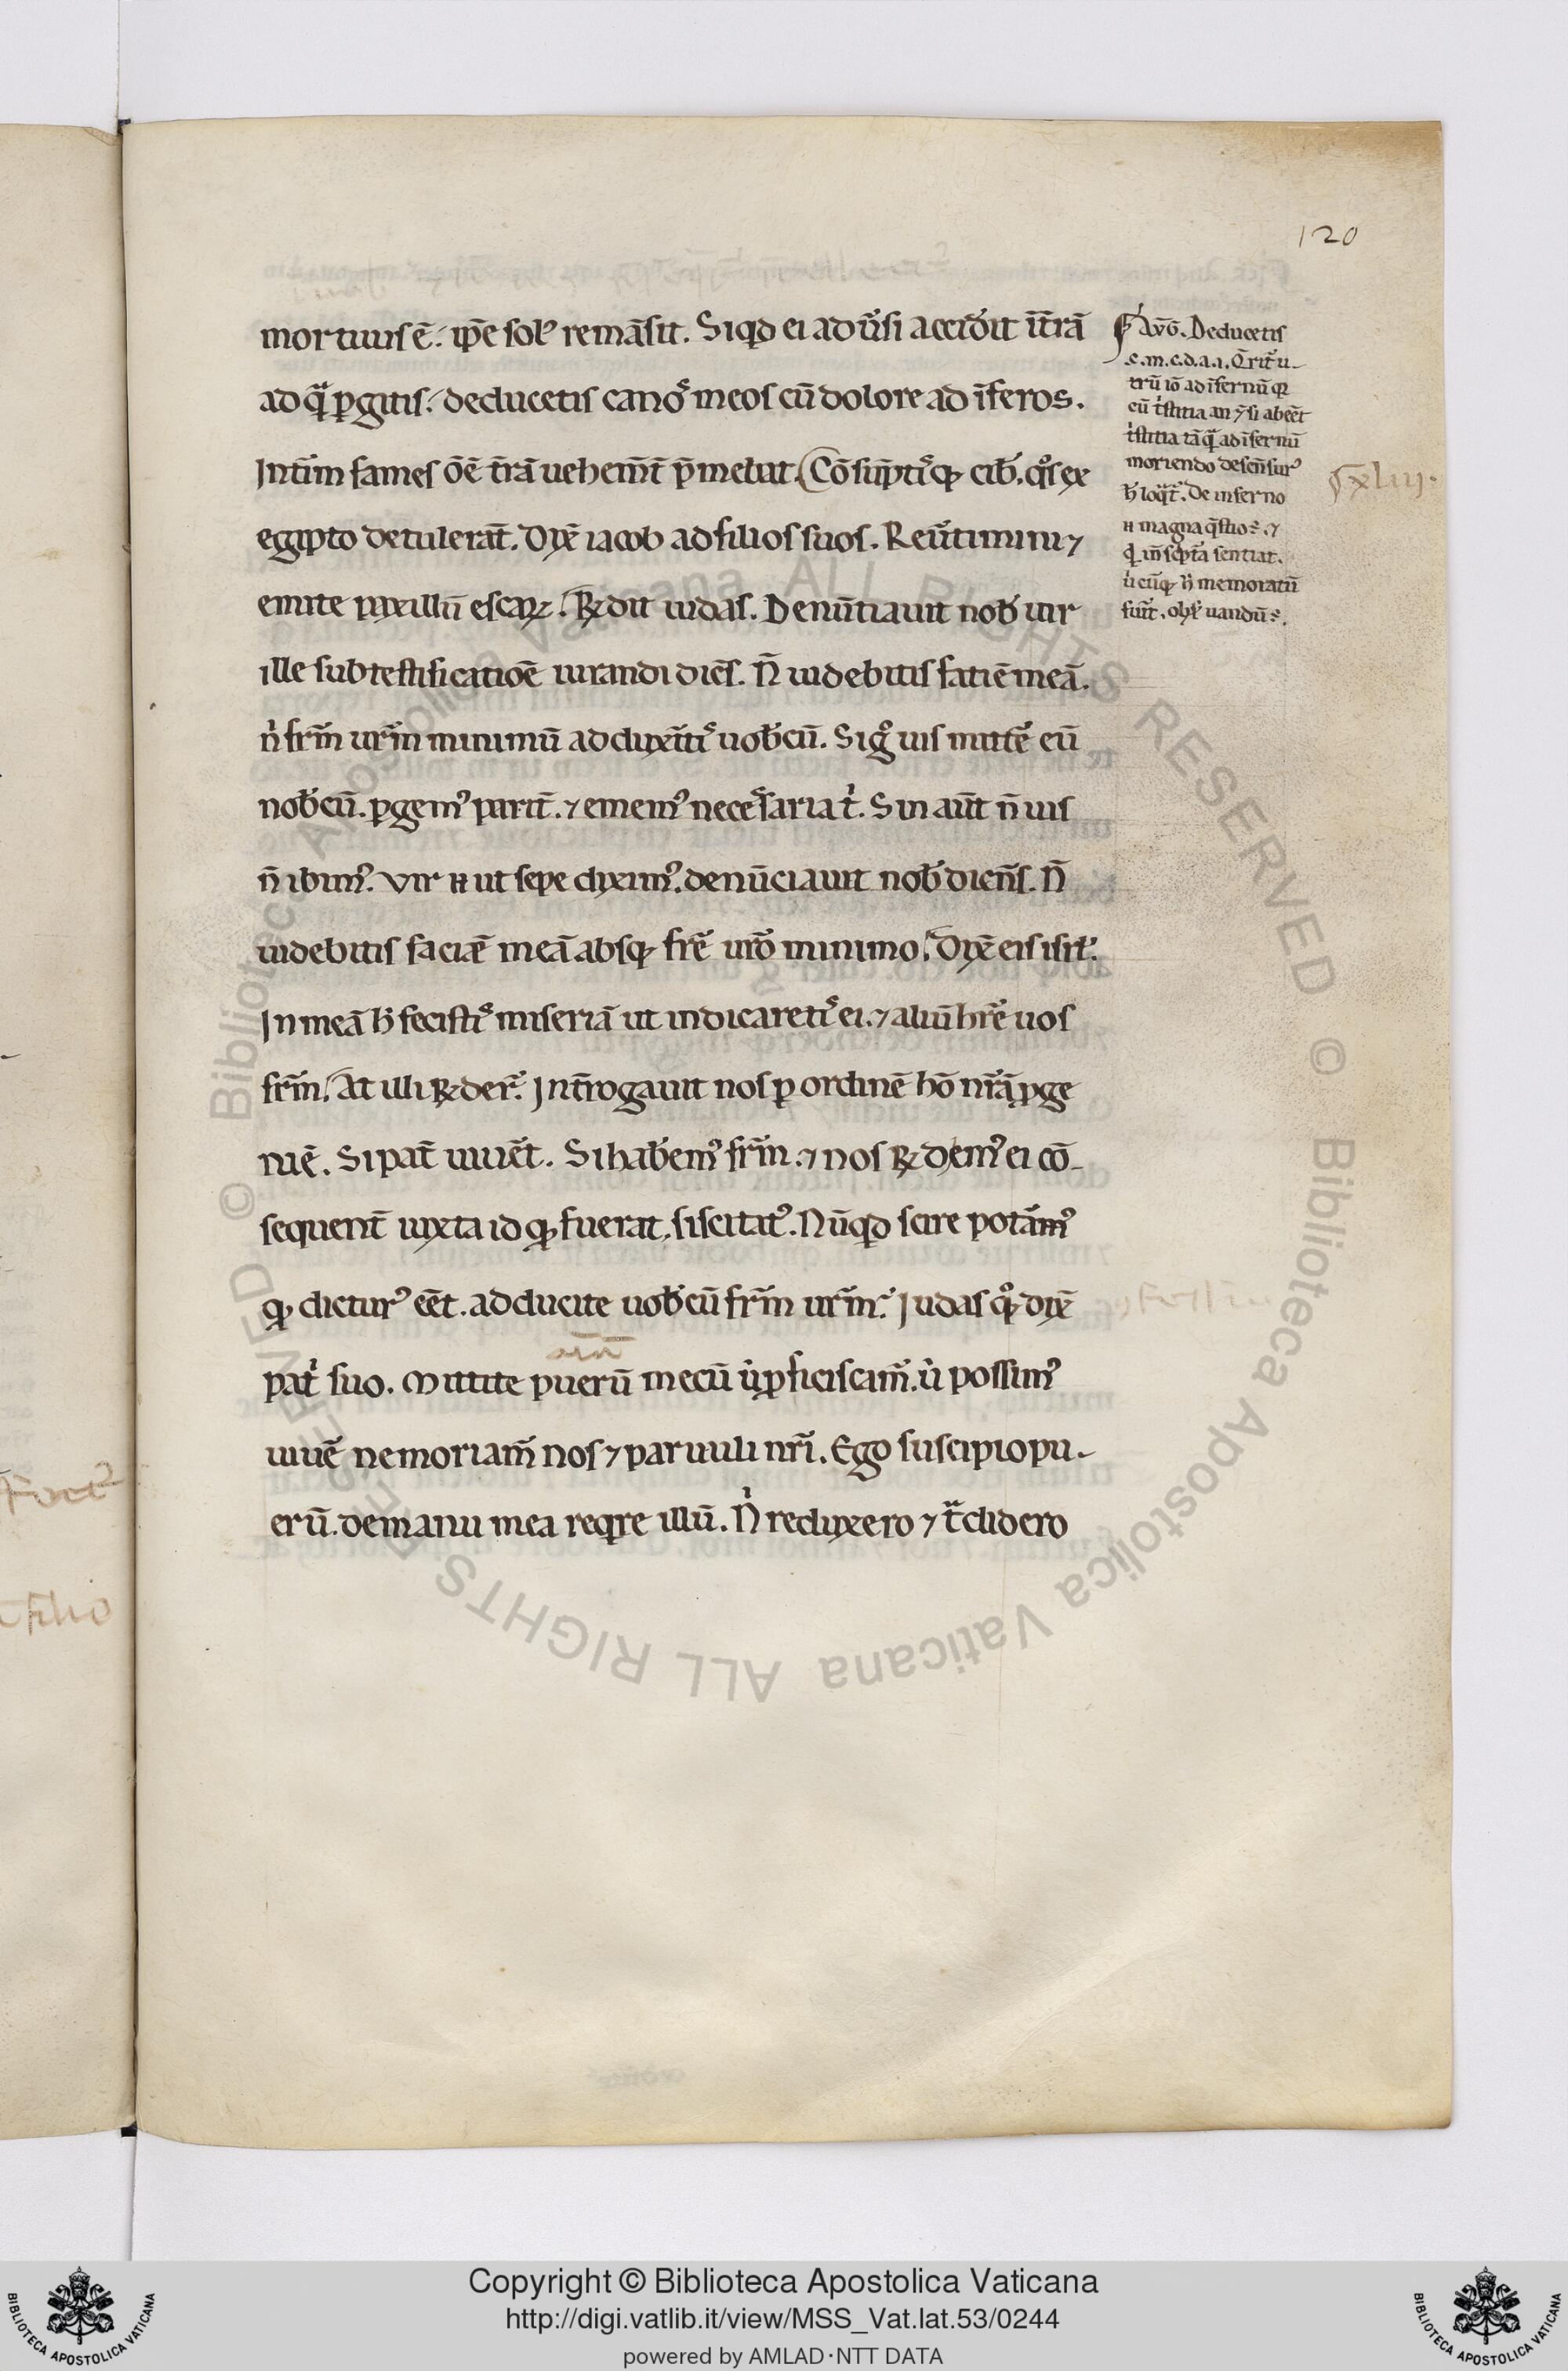 120
mortuus ē. ip̄e sol᾿ remāsit. Siqd ei aduͬsi accid᾿it ī t̄rā
ad qͣ ꝑgitis. deducetis canoˢ meos cū dolore ad īferos.
Int᾿im fames ōē t̄rā uehem̄t p̄mebat. Cōsūptiˢqꝫ cib᾿. qͦs ex
egipto detulerāt. Dix̄ iacob ad filios suos. Reuͬtimini ⁊
emite pauxillū escaꝝ. R̄dit iudas. Denūtiauit nob᾿ uir
ille sub testificatiōe iurandi diēs. N̄ uidebitis fatiē meā.
nͥ fr̄m ur̄m minimū adduxitͥˢ uob᾿cū. Si gͦ uis mitt᾿e eū
nob᾿cū. ꝑgemꝰ parit᾿. ⁊ ememꝰ necessaria tͥ. Sin aūt n̄ uis
n̄ ibimꝰ. vir n̄ ut sepe diximꝰ. denūciauit nob᾿ dicēs. N̄
uidebitis faciē meā absqꝫ fr̄e ur̄o minimo. Dix̄ eis isrl᾿.
In meā h᾿ fecistiˢ miseriā ut indicaretiˢ ei. ⁊ aliū hr̄e uos
fr̄m. At illi R̄der᾿. Int̄rogauit nos ꝑ ordinē hō nr̄ā ꝓge
niē. Si pat᾿ uiuēt. Si hab᾿emꝰ fr̄m. ⁊ nos R̄demꝰ ei cō-
sequent᾿ iuxta id qꝫ fuerat siscitatꝰ. Nūqd scire pot᾿amꝰ
qꝫ dicturꝰ eēt. adducite uob᾿cū fr̄m ur̄m. Iudas qͦqꝫ dix̄
patͥ suo. Mittite puerū mecū uͭ ꝓficiscam᾿. uͭ possimꝰ
uiu᾿e ne moriam᾿ nos ⁊ paruuli nr̄i. Ego suscipio pu-
erū. de manu mea reqͥre illū. Nͥ reduxero ⁊ tͣdidero
Av̄G. Deducetis
.c.m.c.d.a.i. Q̄rit᾿ u-
trū iō ad īfernū qꝫ
cū tͥstitia an ⁊ si abeēt
tͥstitia tāqͣ ad īfernū
moriendo descēsurꝰ
h᾿ loqͣt᾿. De inferno
n̄ magna q̄stio ē. ⁊
qͥ in sc̄pta sentiat.
uͥcūqꝫ h᾿ memoratū
fuīt. obsͬuandū ē.
xliii.
Copyright © Biblioteca Apostolica Vaticana
http://digi.vatlib.it/view/MSS_Vat.lat.53/0244
powered by AMLAD·NTT DATA
BIBLIOTECA APOSTOLICA VATICANA
BIBLIOTECA APOSTOLICA VATICANA
© Biblioteca Apostolica Vaticana ALL RIGHTS RESERVED © Biblioteca Apostolica Vaticana ALL RIGHTS RESERVED